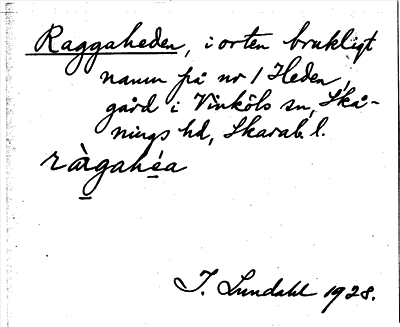 Raggaheden, i orten brukligt
namn på nr 1 Heden,
gård i Vinköls sn, Skå-
nings hd, Skarab. l.
ràgahéa
I. Lundahl 1928.